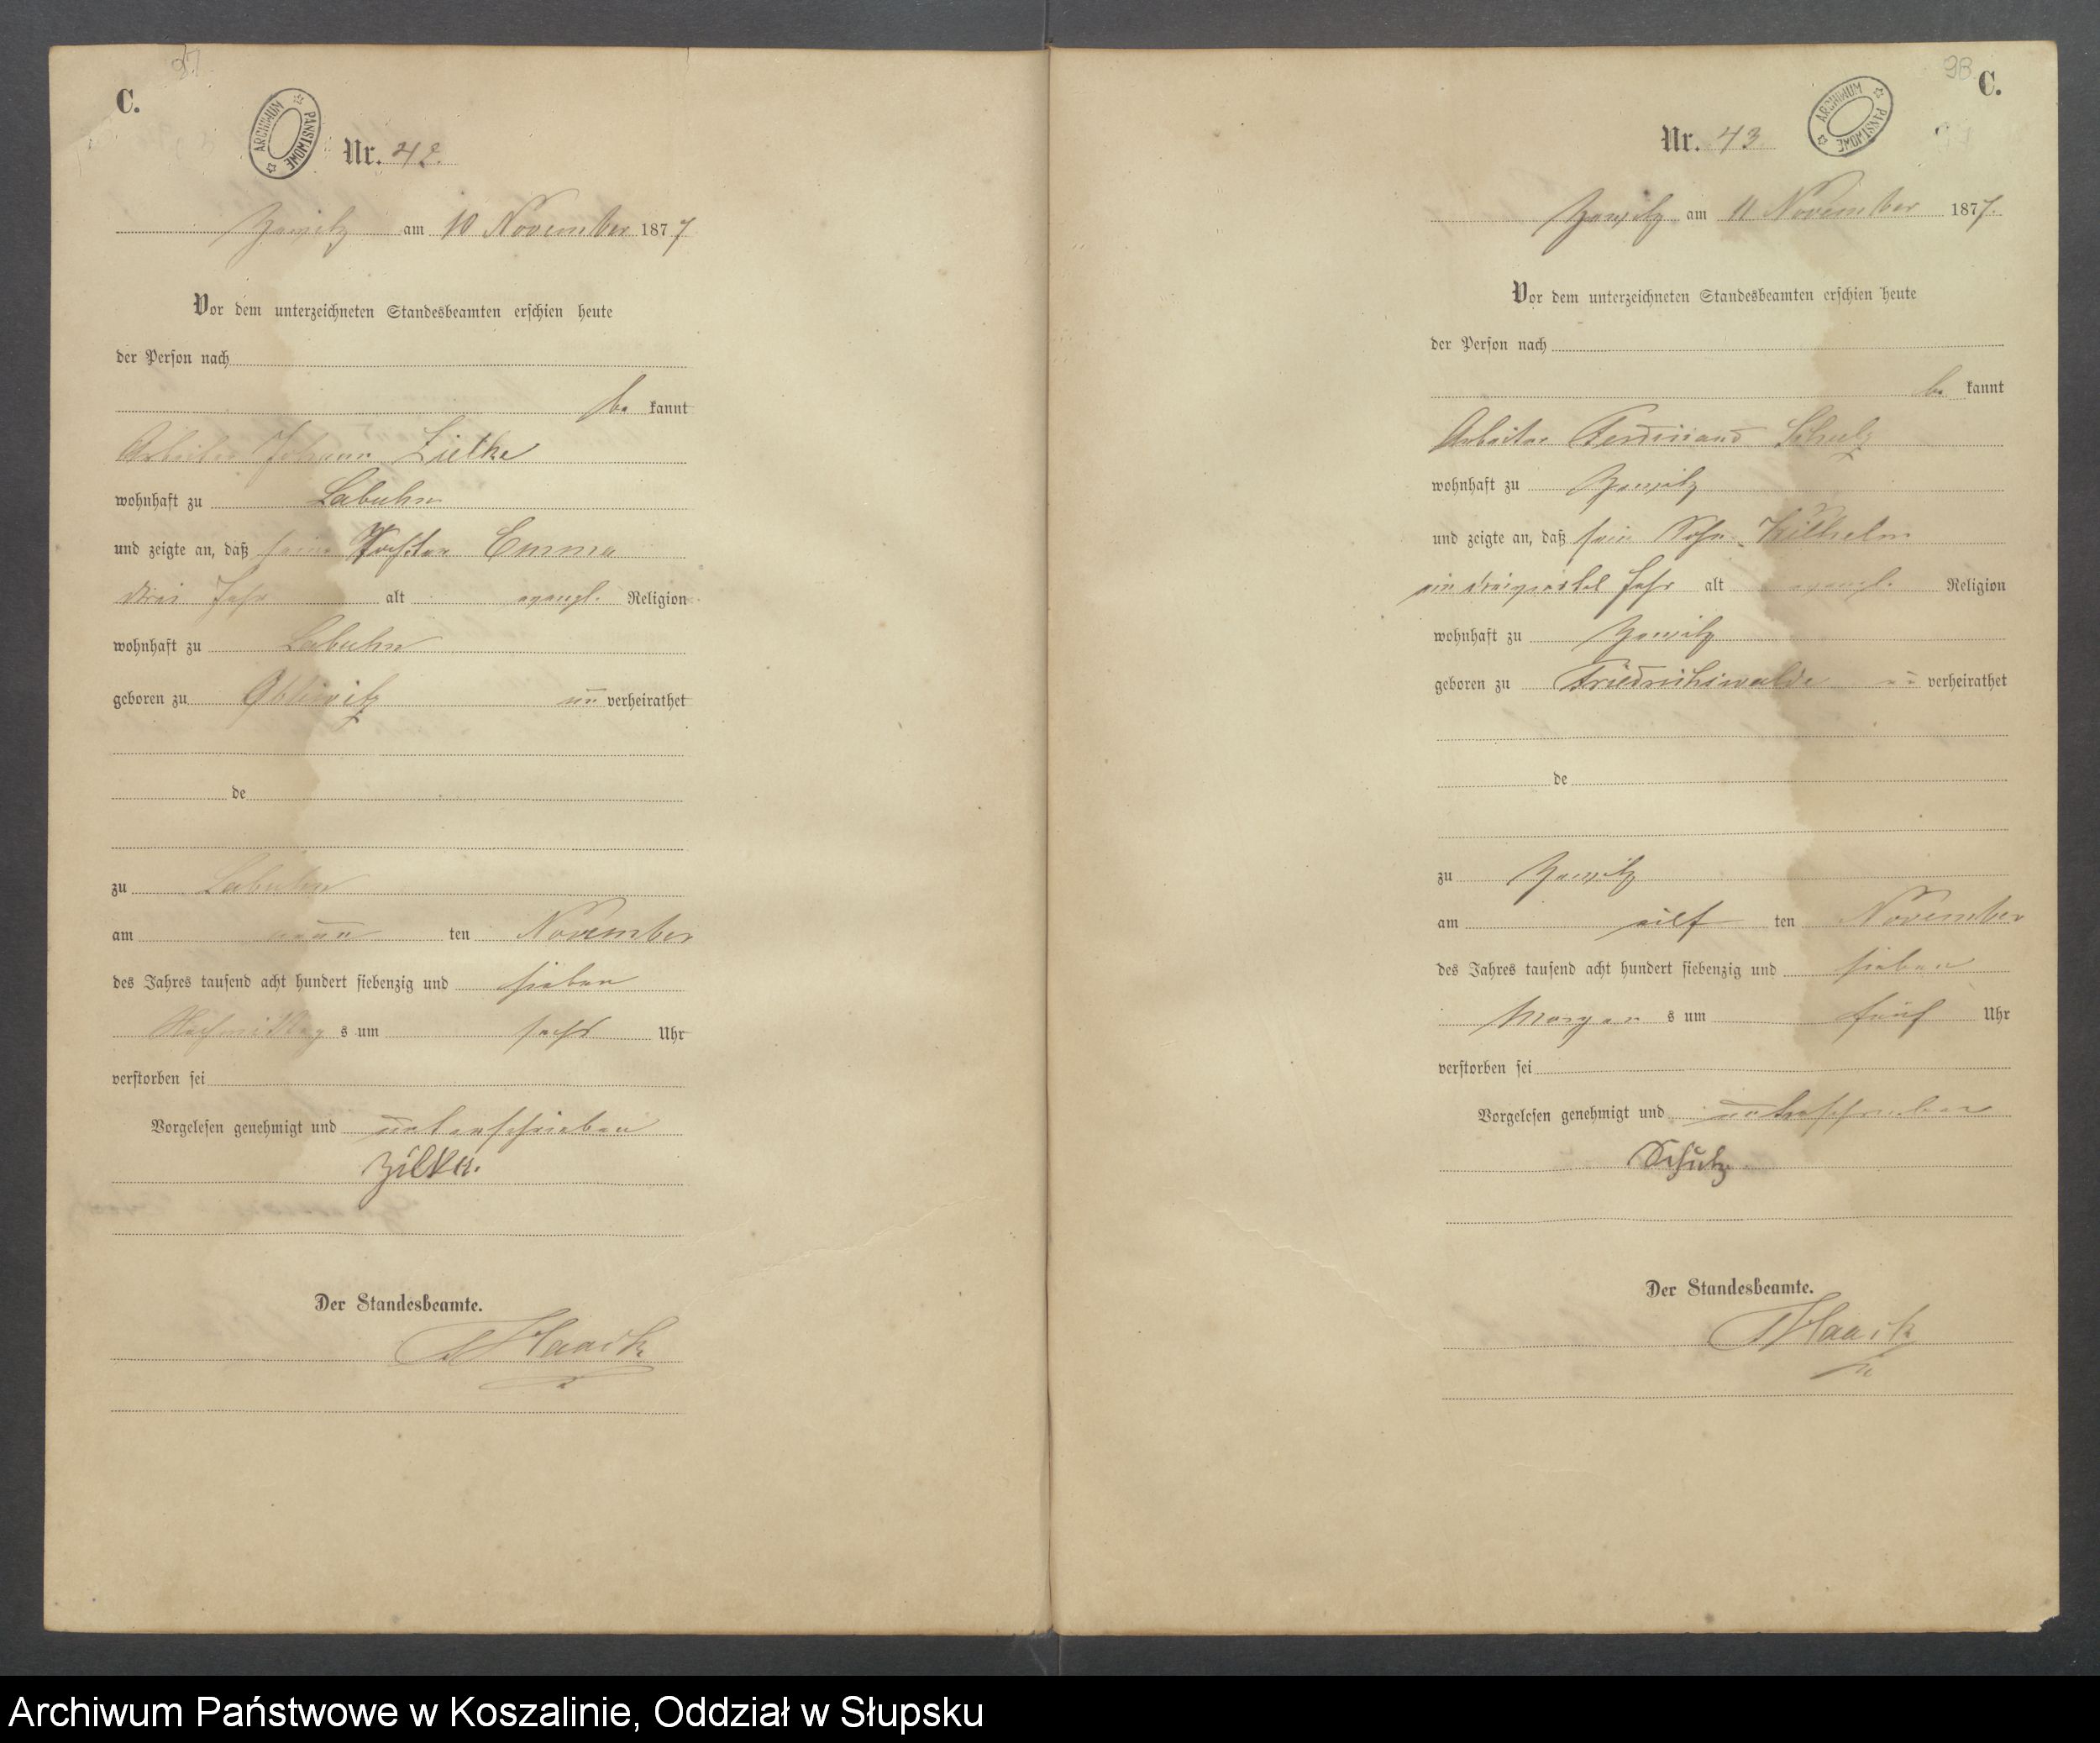 97
C.
ARCHIWUM PAŃSTWOWE
Nr. 42.
Zewitz am 10 November 1877
Vor dem unterzeichneten Standesbeamten erschien heute
der Person nach
be kannt
Arbeiter Johann Zielke
wohnhaft zu Labuhn
und zeigte an, daß seine Tochter Emma
drei Jahr alt evangl. Religion
wohnhaft zu Labuhn
geboren zu un verheirathet
de
zu Labuhn
am neun ten November
des Jahres tausend acht hundert siebenzig und sieben
Nachmittag s um sechs Uhr
verstorben sei
Vorgelesen genehmigt und unterschrieben
Der Standesbeamte.
Haack
98
C.
ARCHIWUM PAŃSTWOWE
Nr. 43
Zewitz am 11 November 1877.
Vor dem unterzeichneten Standesbeamten erschien heute
der Person nach
be kannt
Arbeiter Ferdinand Schulz
wohnhaft zu Zewitz
und zeigte an, daß sein Sohn Wilhelm
ein dreiviertel Jahr alt evangl. Religion
wohnhaft zu Zewitz
geboren zu Friedrichswalde un verheirathet
de
zu Zewitz
am eilf ten November
des Jahres tausend acht hundert siebenzig und sieben
Morgen s um fünf Uhr
verstorben sei
Vorgelesen genehmigt und unterschrieben
Schulz
Der Standesbeamte.
Haack
Archiwum Państwowe w Koszalinie, Oddział w Słupsku